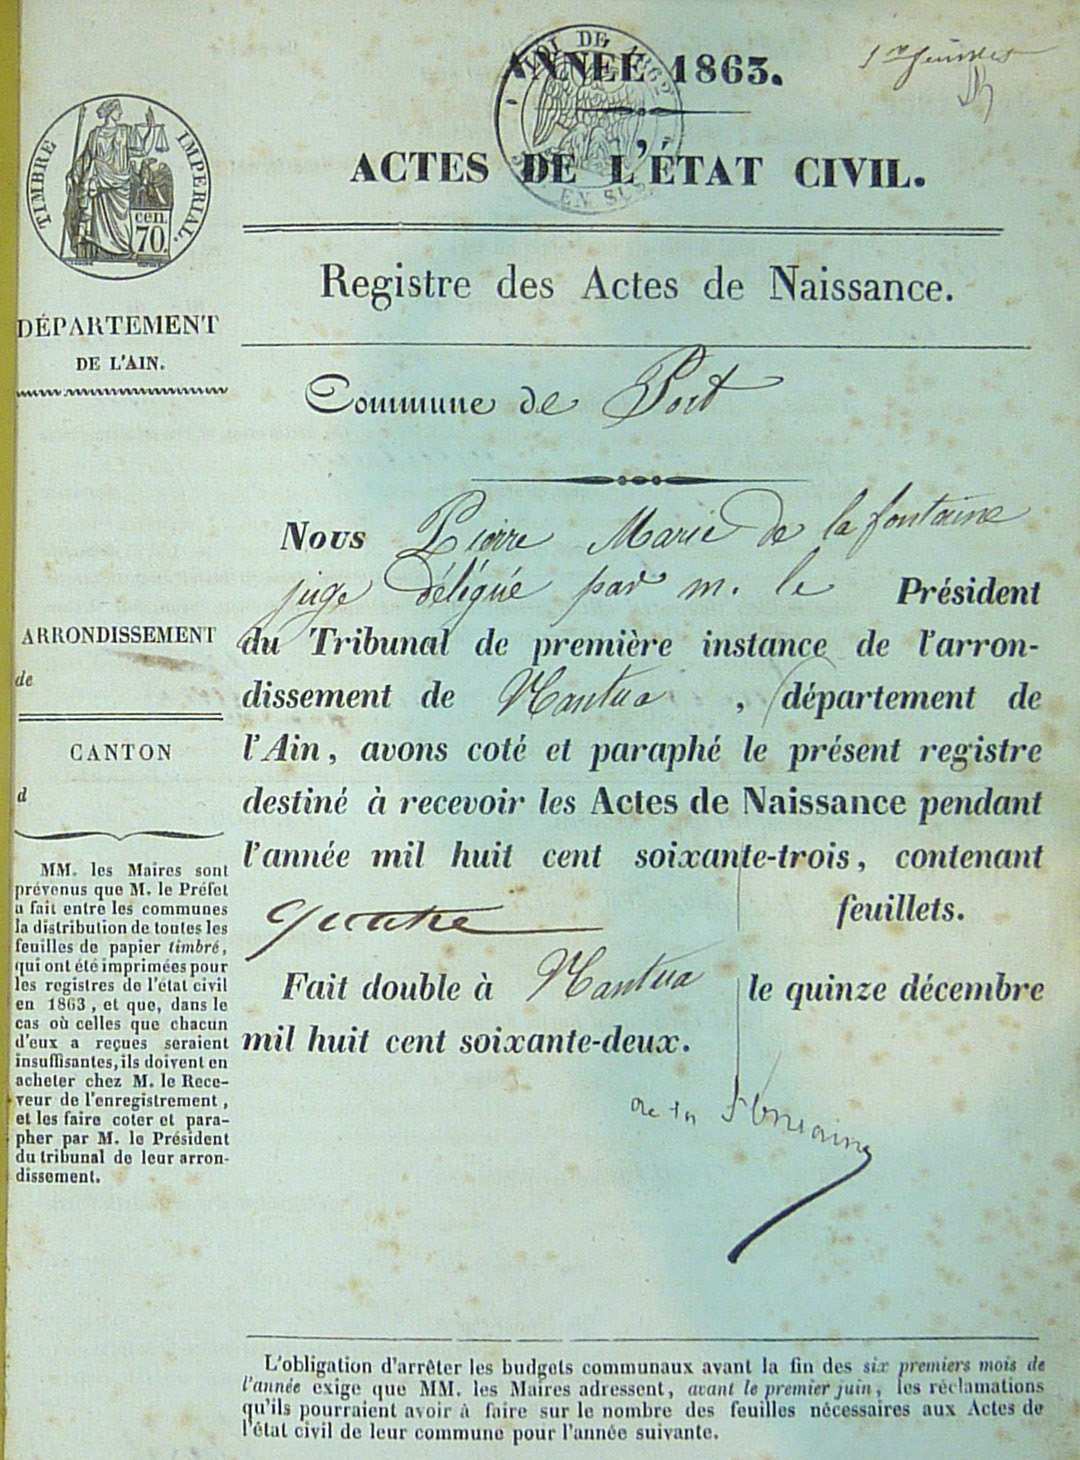 ANNÉE 1863.
1er feuillet
LOI DE 1862
EN SUS
ACTES DE L'ÉTAT CIVIL.
TIMBRE IMPERIAL.
cen.
70.
Registre des Actes de Naissance.
DÉPARTEMENT
DE L'AIN.
Commune de Port
Nous Pierre Marie de la fontaine
juge délégué par m. le Président
du Tribunal de première instance de l'arron-
dissement de Nantua, département de
l'Ain, avons coté et paraphé le présent registre
destiné à recevoir les Actes de Naissance pendant
l'année mil huit cent soixante-trois, contenant
quatre feuillets.
Fait double à Nantua le quinze décembre
mil huit cent soixante-deux.
de la Fontaine
ARRONDISSEMENT
de
CANTON
d
MM. les Maires sont
prévenus que M. le Préfet
a fait entre les communes
la distribution de toutes les
feuilles de papier timbré,
qui ont été imprimées pour
les registres de l'état civil
en 1863, et que, dans le
cas où celles que chacun
d'eux a reçues seraient
insuffisantes, ils doivent en
acheter chez M. le Rece-
veur de l'enregistrement,
et les faire coter et para-
pher par M. le Président
du tribunal de leur arron-
dissement.
L'obligation d'arrêter les budgets communaux avant la fin des six premiers mois de
l'année exige que MM. les Maires adressent, avant le premier juin, les réclamations
qu'ils pourraient avoir à faire sur le nombre des feuilles nécessaires aux Actes de
l'état civil de leur commune pour l'année suivante.